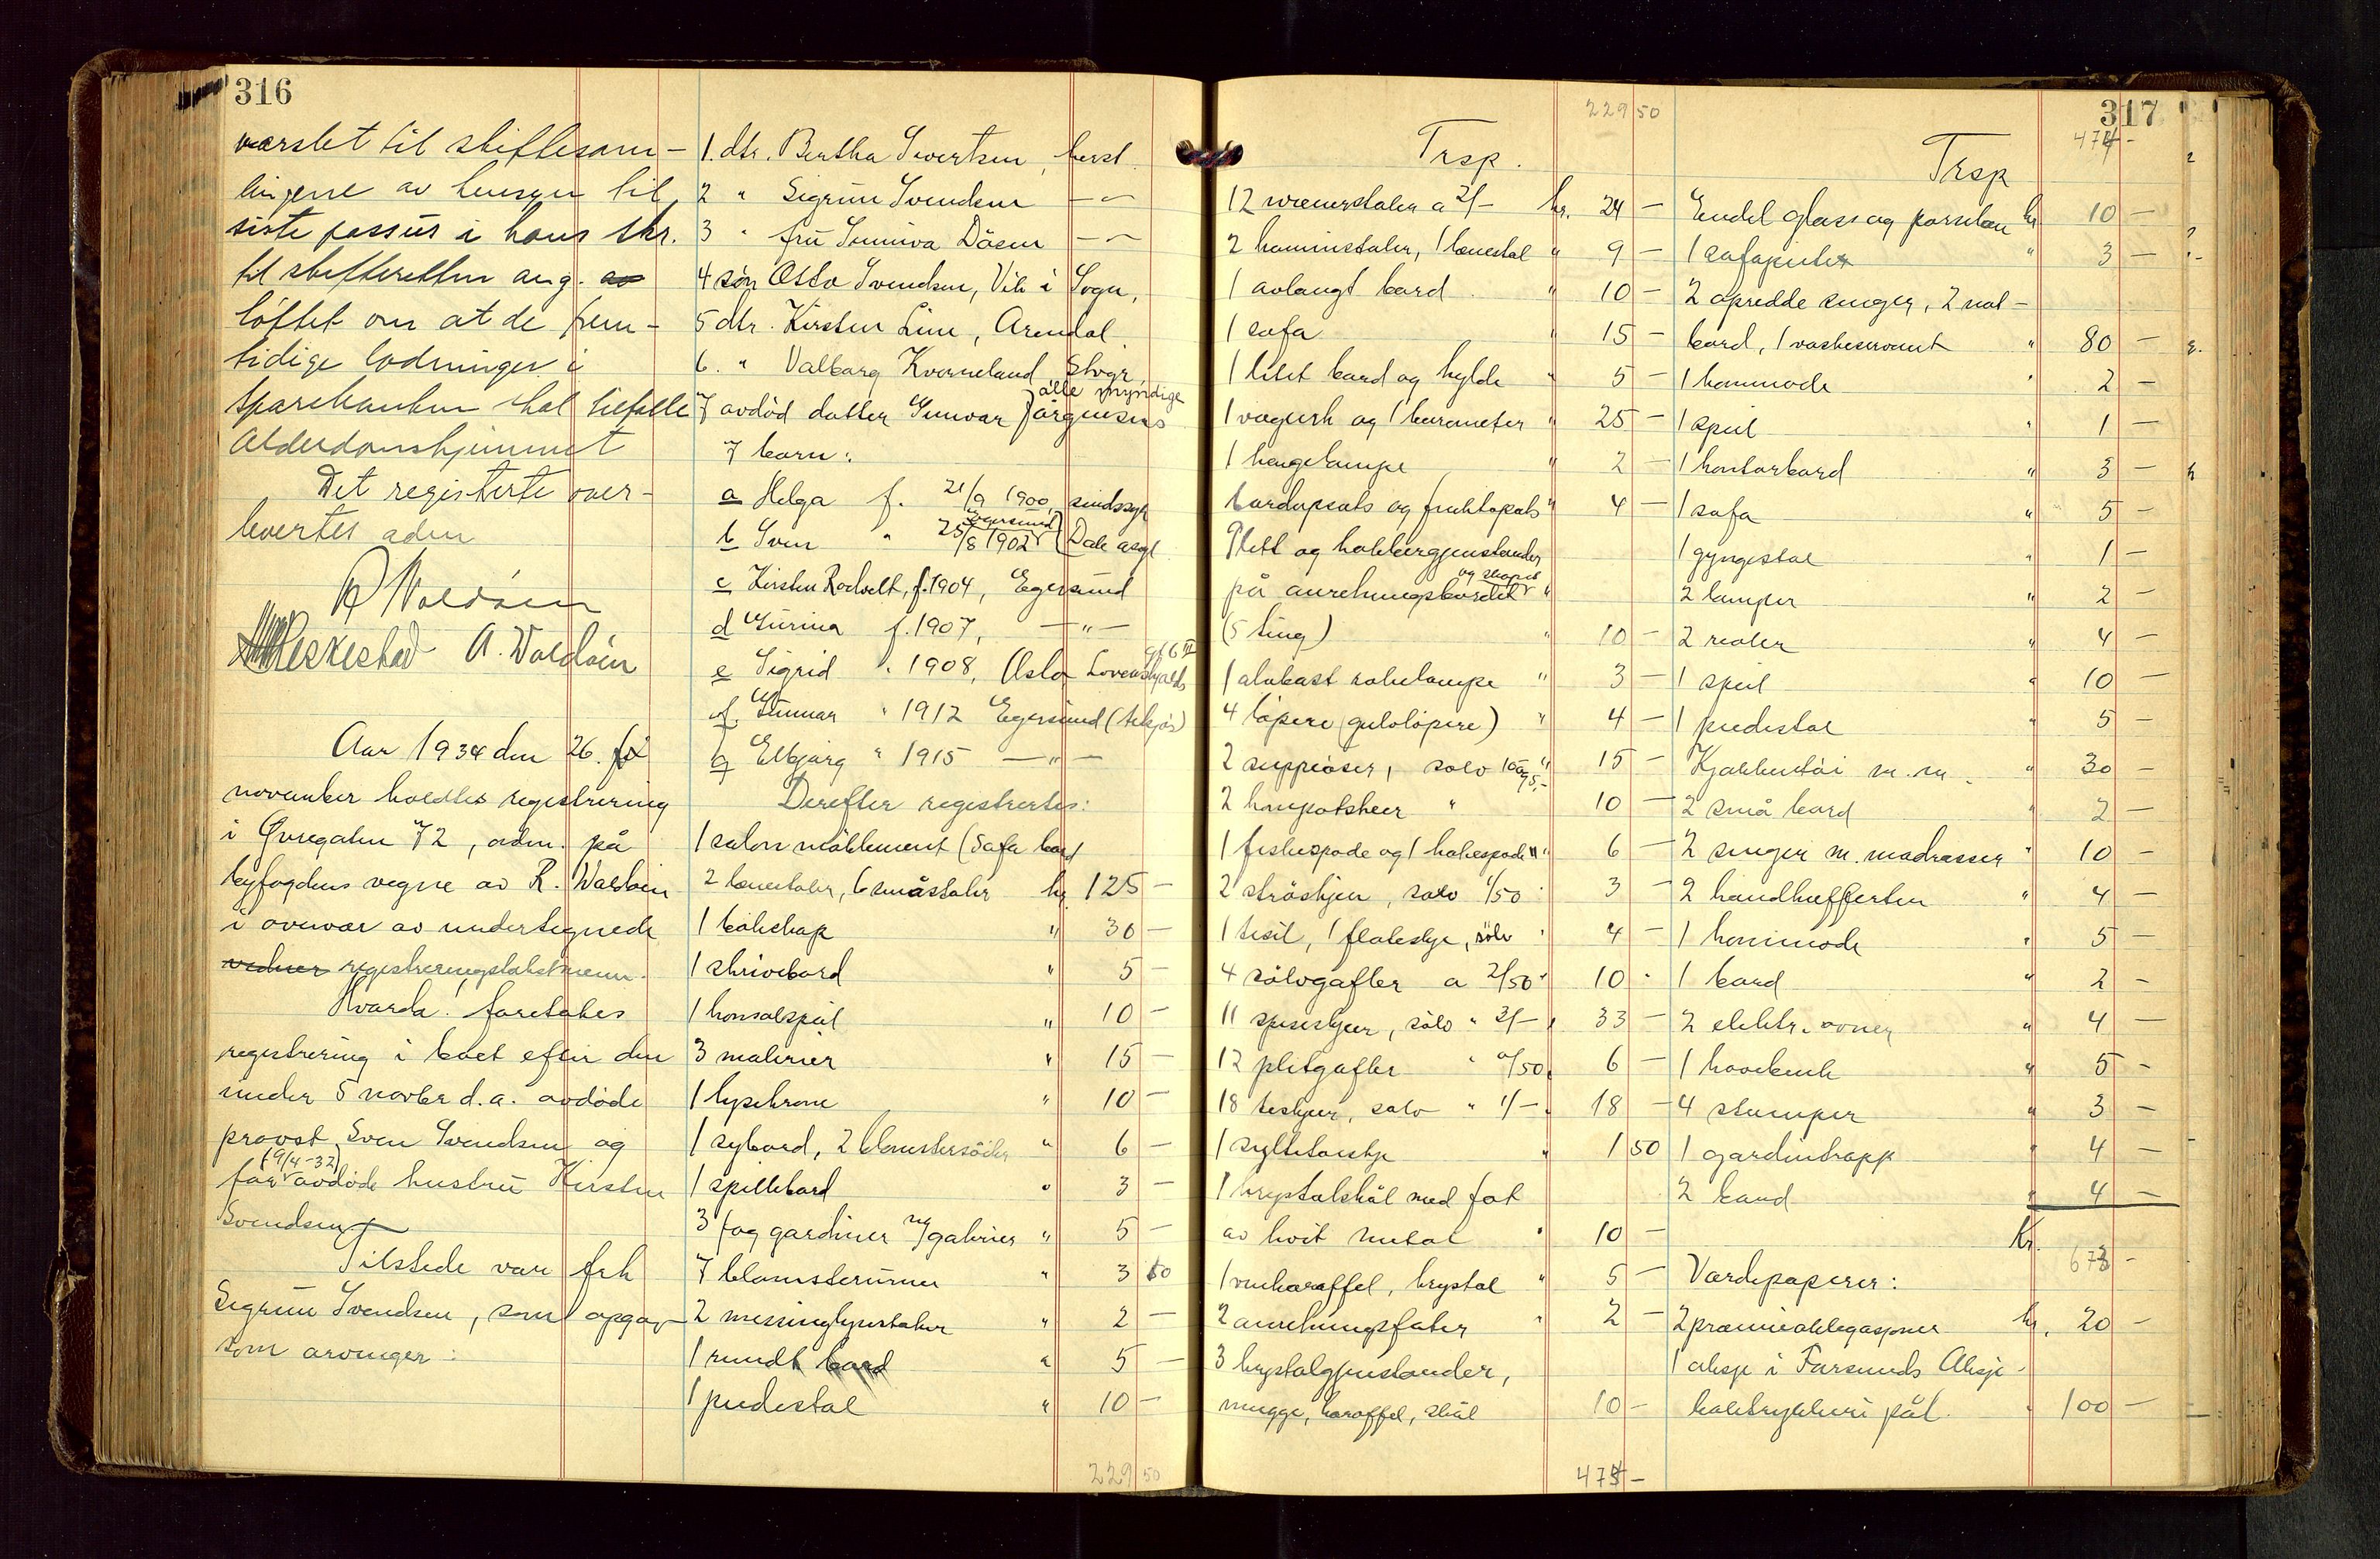 316
varslet til skiftesam-
lingene av hensyn til
siste passus i hans skr.
til skifteretten ang. av
løftet om at de frem-
tidige lodninger i
Sparebanken skal tilfalle
Alderdomshjemmet
Det registrerte over-
levertes adm
R Waldsén
A. Waldsén
Aar 1934 den 26. på
november holdtes registrering
i Øvregaten 72, adm. på
byfogdens vegne av R. Waldsén
i overvær av undertegnede
vidner registreringstakstmenn.
Hvorda! foretokes
registrering i boet efter den
under 5 novbr d.a. avdøde
provst Sven Svendsen og
(9/4-32)
før avdøde hustru Kirsten
Svendsen
Tilstede var frk
Sigrun Svendsen, som opgav
som arvinger:
1. dtr. Bertha Sivertsen, herst.
2 " Sigrun Svendsen —〃—
3 " fru Sunniva Dåsen —〃—
4 søn Otto Svendsen, Vik i Sogn,
5 dtr. Kirsten Lim, Arendal.
6. " Valborg Kverneland Stvgr,
alle myndige
7 avdød datter Gunvor Jørgensens
7 barn:
a Helga f. 21/9 1900, sindssyk
Egersund
b Sven " 25/8 1902 (Dale asyl
c Kirsten Rodvelt, f. 1904, Egersund
d Gurina f. 1907, —"—
e Sigrid " 1908, Oslo Lovenskjolds
gt 6 II
f. Gunnar " 1912 Egersund (tilsjøs)
g Elbjørg " 1915 —"—
Derefter registrertes:
1 salon møblement (Sofa bord
2 lenestoler, 6 småstoler kr. 125 —
1 bokskap " 30 —
1 skrivebord " 5 —
1 konsolspeil " 10 —
3 malerier " 15 —
1 lysekrone " 10 —
1 sybord, 2 blomstersøiler " 6 —
1 spillebord " 3 —
3 fag gardiner m/galerier " 5 —
7 blomsterurner " 3 50
2 messinglysestaker " 2 —
1 rundt bord " 5 —
1 piedestal " 10 —
229 50
229 50
Trsp.
12 wienerstoler a 2/- kr. 24 —
2 kaminstoler, 1 lænestol " 9 —
1 avlangt bord " 10 —
1 sofa " 15 —
1 litet bord og hylde " 5 —
1 vægurh og 1 barometer " 25 —
1 hengelampe " 2 —
Bordopsats og fruktopsats " 4 —
Plett og kobbergjenstander
og skapet
på anretningsbordet "
(5 ting) " 10 —
1 alabast lampe " 3 —
4 løpere (gulvløpere) " 4 —
2 suppeøser, sølv 10 og 5,- " 15 —
2 kompotskeer " 10 —
1 fiskespade og 1 kakespade " 6 —
2 strøskjeer, sølv 1/50 " 3 —
1 tesil, 1 fløteskje, sølv " 4 —
4 sølvgafler a 2/50 " 10 -
11 spiseskjeer, sølv " 3/- " 33 —
12 pletgafler " 0/50 " 6 —
18 teskjeer, sølv " 1/- " 18 —
1 syltetøiskje " 1 50
1 krystalskål med fat
av hvit metal " 10 —
1 vinkaraffel, krystal " 5 —
2 anretningsfater " 2 —
3 krystalgjenstander,
mugge, karaffel, skål 10 —
317
Trsp
474 -
Endel glass og porselæn kr 10 —
1 sofapute " 3 —
2 opredde senger, 2 nat-
bord, 1 vaskeservant " 80 —
1 kommode " 2 —
1 speil " 1 —
1 kontorbord " 3 —
1 sofa " 5 —
1 gyngestol " 1 —
2 lamper " 2 —
2 reoler " 4 —
1 speil " 10 —
1 piedestal " 5 —
Kjøkkentøi m.m. " 30 —
2 små bord " 2 —
2 senger m. madrasser " 10 —
2 håndkufferter " 4 —
1 kommode " 5 —
1 bord " 2 —
2 elektr. ovner " 4 —
1 havebenk " 5 —
4 stamper " 3 —
1 gardintrapp " 4 —
2 bord " 4 —
Kr. 673 -
Verdipapirer:
2 præmieobligasjoner kr. 20 —
1 aksje i Farsunds Aksje-
boktrykkeri pål. " 100 —